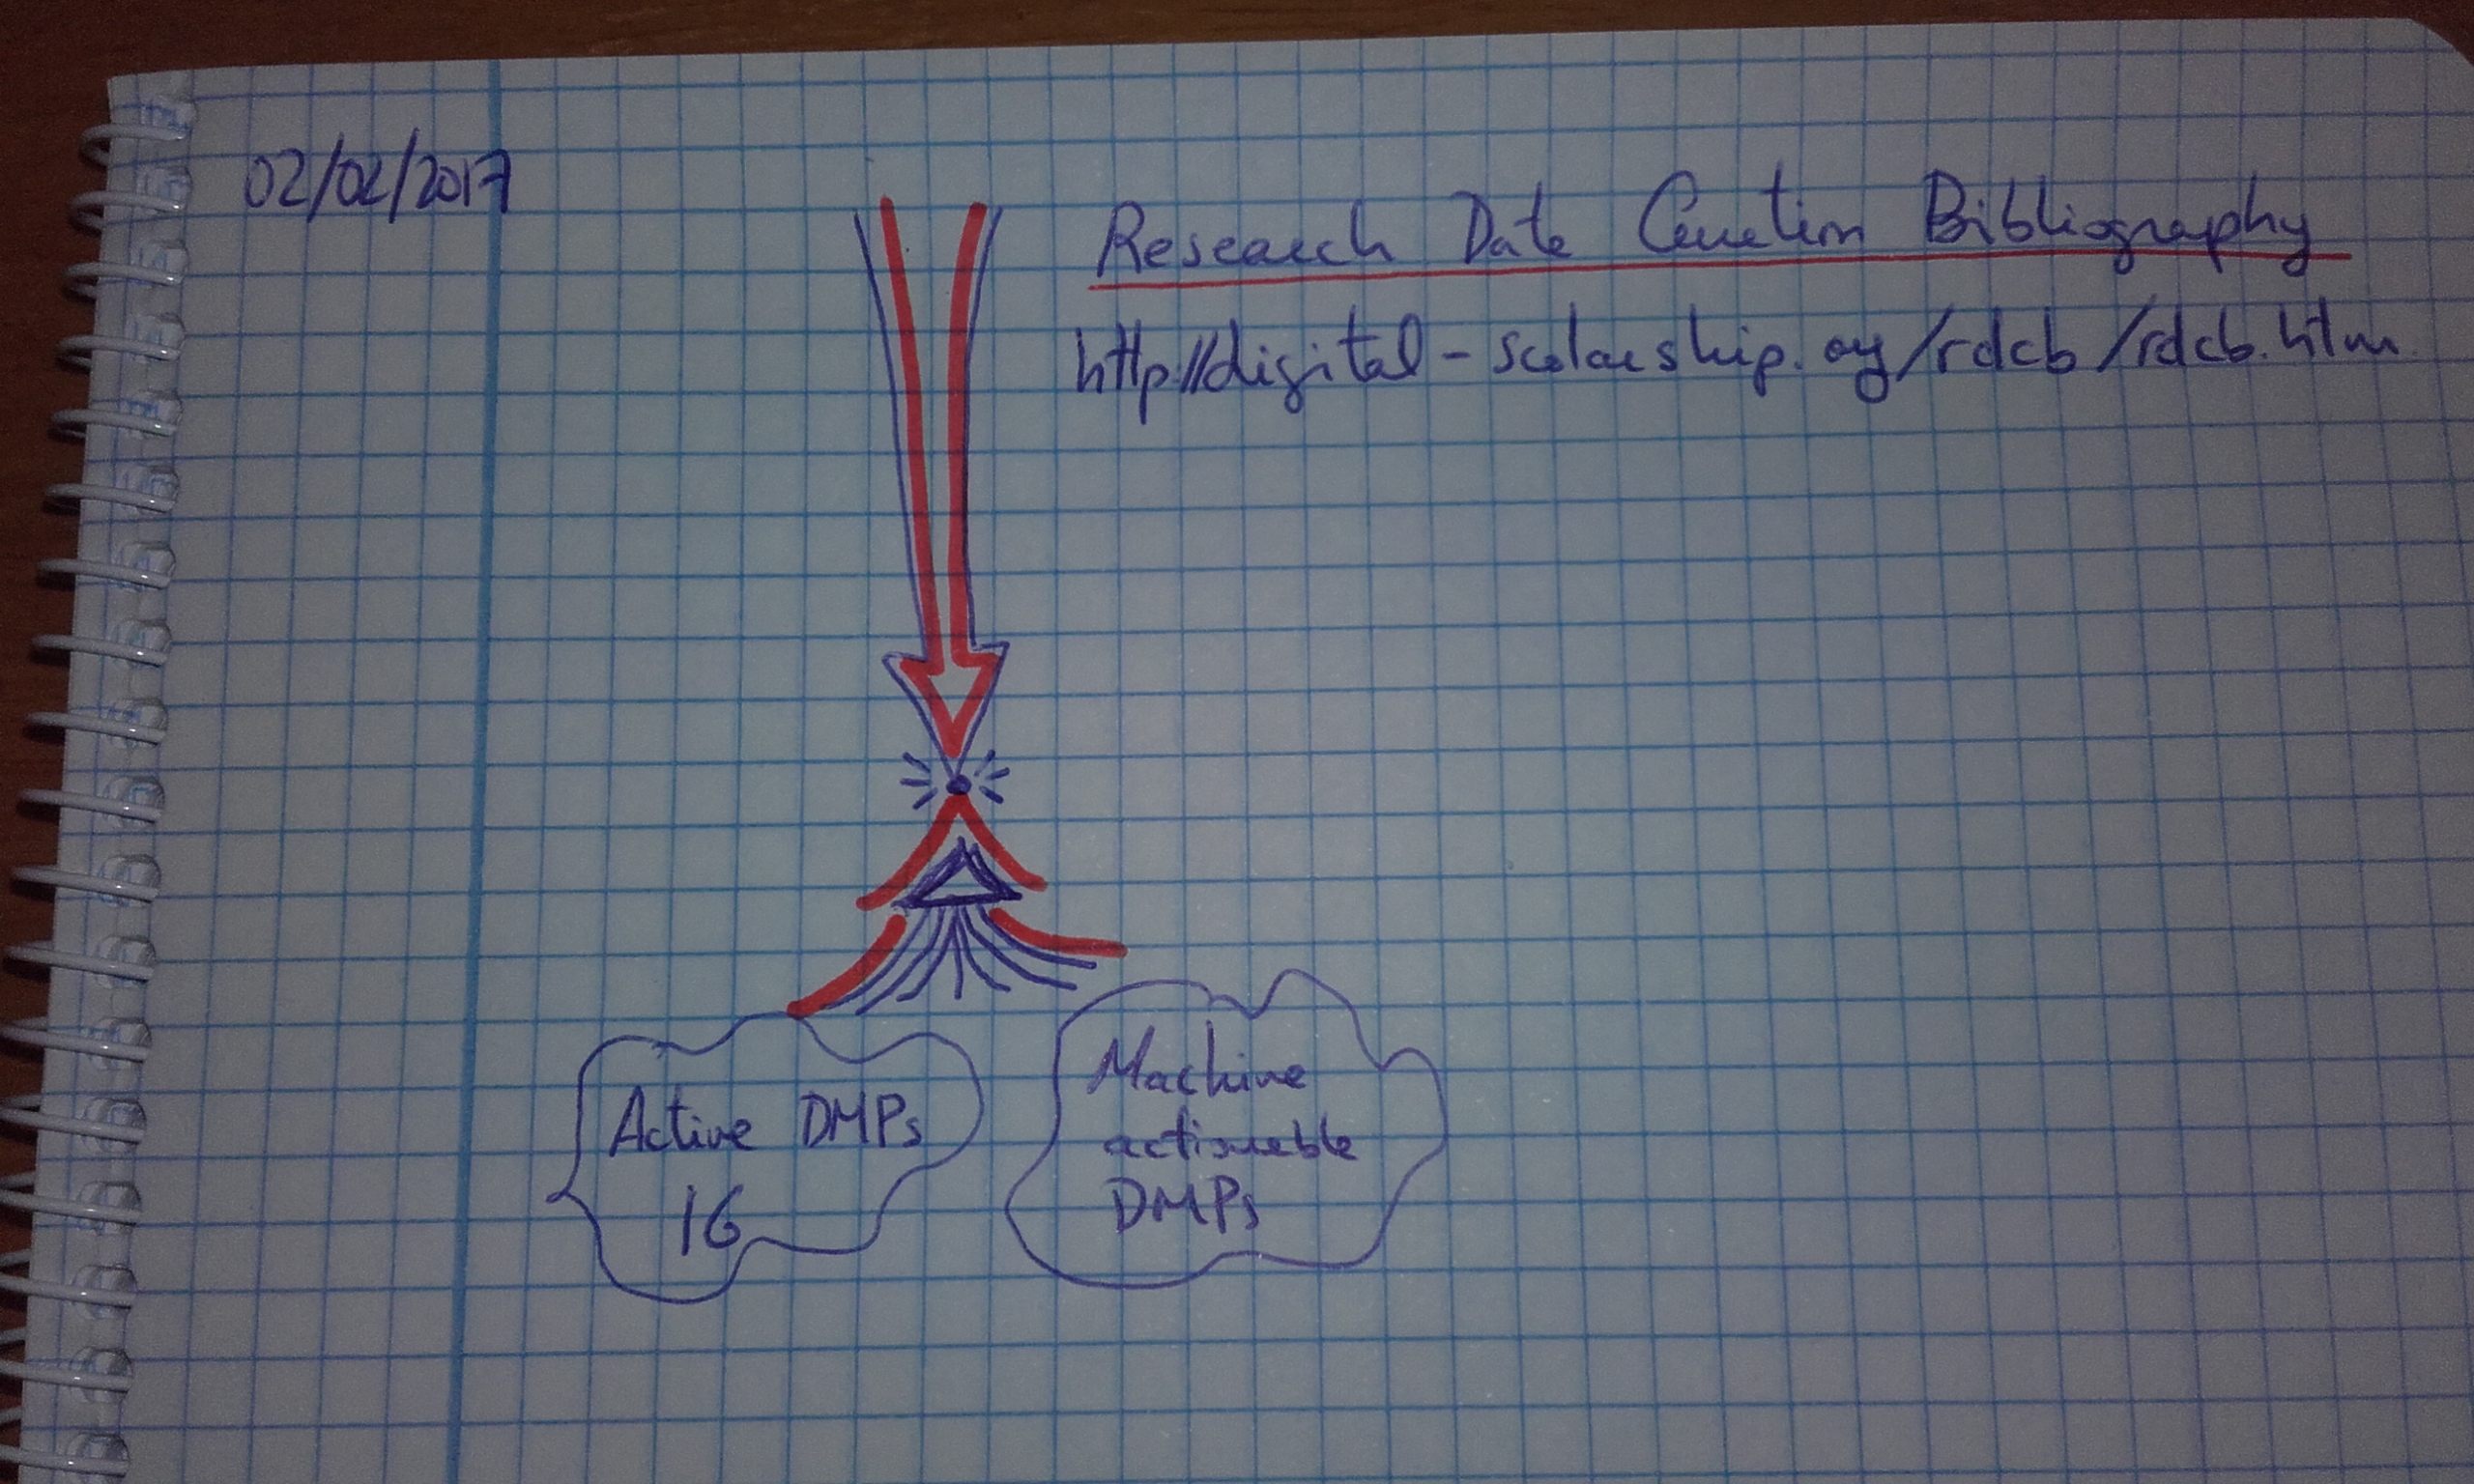 02/02/2017
Research Data Curation Bibliography
http://digital-scholarship.org/rdcb/rdcb.htm
Active DMPs
IG
Machine
actionable
DMPs